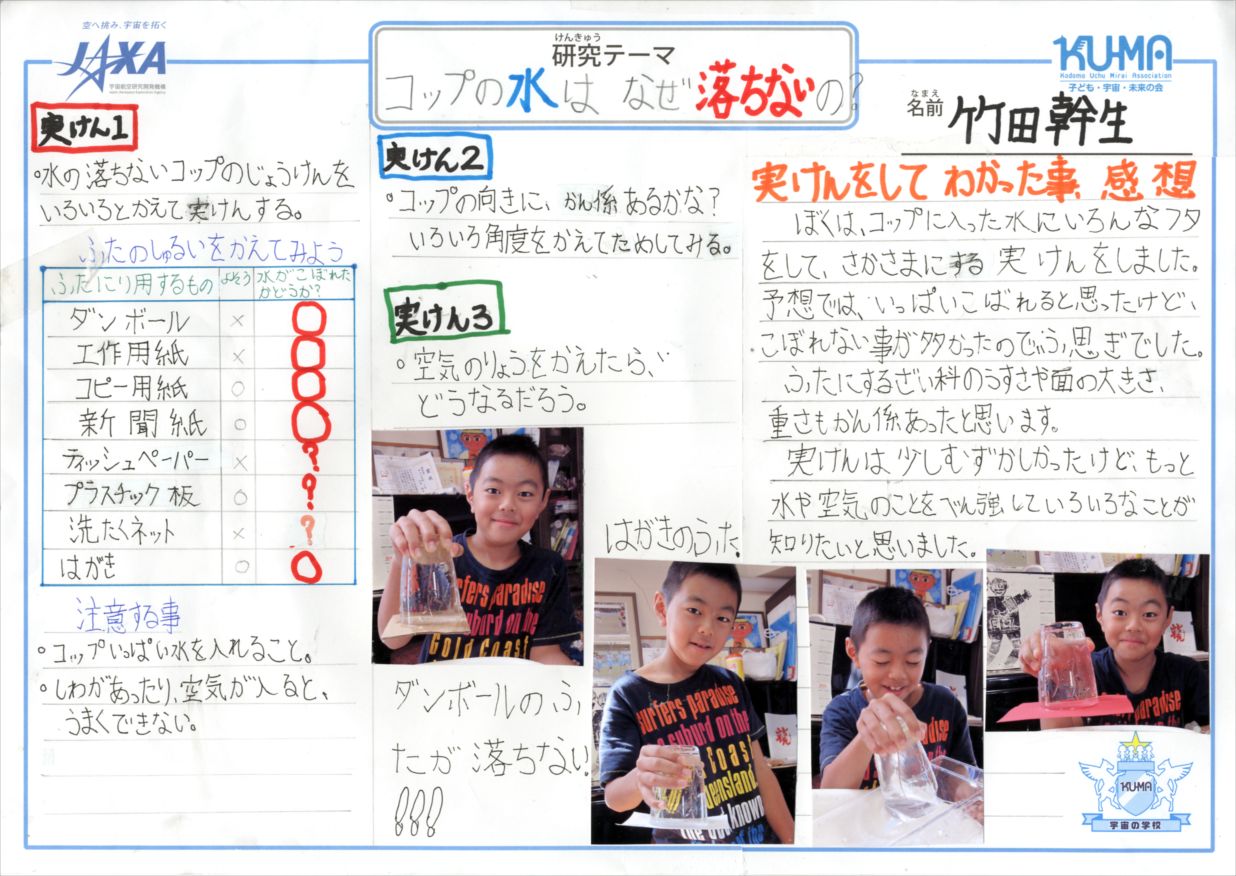 空へ挑み、宇宙を拓く
JAXA
宇宙航空研究開発機構
Japan Aerospace Exploration Agency
けんきゅう
研究テーマ
コップの水はなぜ落ちないの?
KU-MA
Kodomo Uchu Mirai Association
子ども・宇宙・未来の会
なまえ
名前 竹田幹生
実けん1
○水の落ちないコップのじょうけんを
いろいろとかえて実けんする。
ふたのしゅるいをかえてみよう
ふたにり用するもの よそう 水がこぼれたかどうか?
ダンボール × ○
工作用紙 × ○
コピー用紙 ○ ○
新聞紙 ○ ○
ティッシュペーパー × ?
プラスチック板 ○ ?
洗たくネット × ?
はがき ○ ○
注意する事
○コップいっぱい水を入れること。
○しわがあったり、空気が入ると、
うまくできない。
実けん2
○コップの向きに、かん係あるかな?
いろいろ角度をかえてためしてみる。
実けん3
○空気のりょうをかえたら、
どうなるだろう。
はがきのふた
ダンボールのふ
たが落ちない!
!!!
実けんをしてわかった事、感想
ぼくは、コップに入った水にいろんなフタ
をして、さかさまにする実けんをしました。
予想では、いっぱいこばれると思ったけど、
こぼれない事が多かったのでふう思ぎでした。
ふたにするざい料のうすさや面の大きさ、
重さもかん係あったと思います。
実けんは少しむずかしかったけど、もっと
水や空気のことをべん強していろいろなことが
知りたいと思いました。
surfers paradise
Gold Coast
KU-MA
宇宙の学校